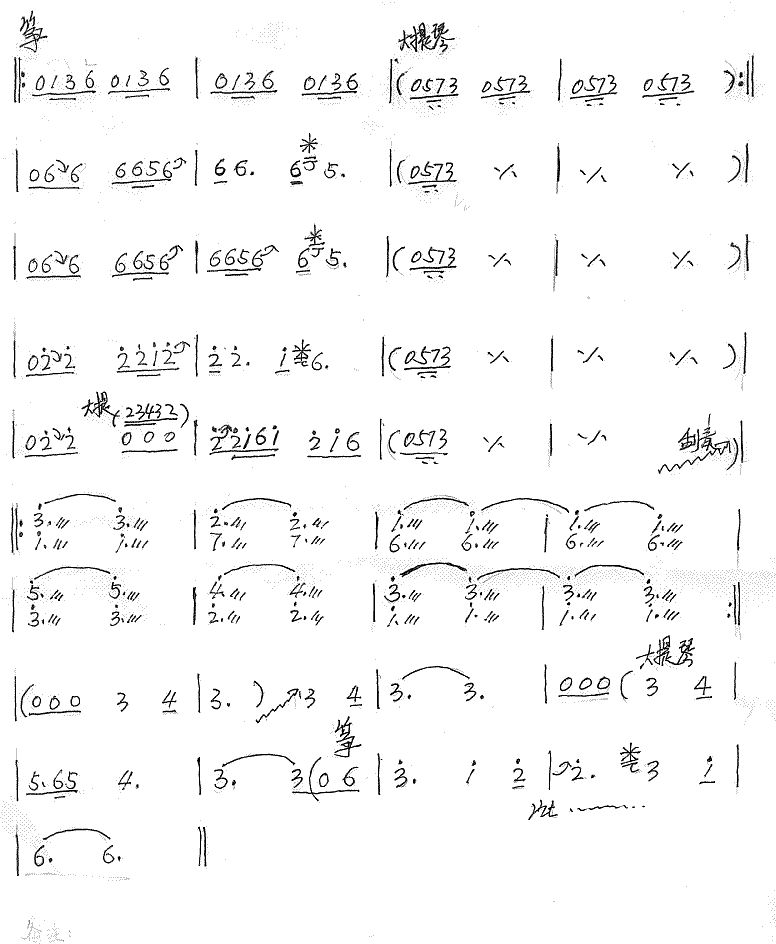 筝 大提琴
‖: 0136 0136 | 0136 0136 |( 0573 0573 | 0573 0573 ) :‖
| 06 6 6656 | 6 6. 6 5. |( 0573 ٪ | ٪ ٪ )|
| 06 6 6656 | 6656 6 5. |( 0573 ٪ | ٪ ٪ )|
| 02 2 2212 | 2 2. 1 6. |( 0573 ٪ | ٪ ٪ )|
大提 (23432)
| 02 2 000 | 22161 216 |( 0573 ٪ | ٪ 刮奏 )|
‖: 3. /// 3. /// | 2. /// 2. /// | 1. /// 1. /// | 1. /// 1. /// |
1. /// 1. /// 7. /// 7. /// 6. /// 6. /// 6. /// 6. ///
| 5. /// 5. /// | 4. /// 4. /// | 3. /// 3. /// | 3. /// 3. /// :‖
3. /// 3. /// 2. /// 2. /// 1. /// 1. /// 1. /// 1. ///
大提琴
|( 000 3 4 | 3. ) 3 4 | 3. 3. | 000 ( 3 4 |
筝
| 5.65 4. | 3. 3 ( 0 6 | 3. 1 2 | 2. 3 1 |
| 6. 6. ‖
备注: